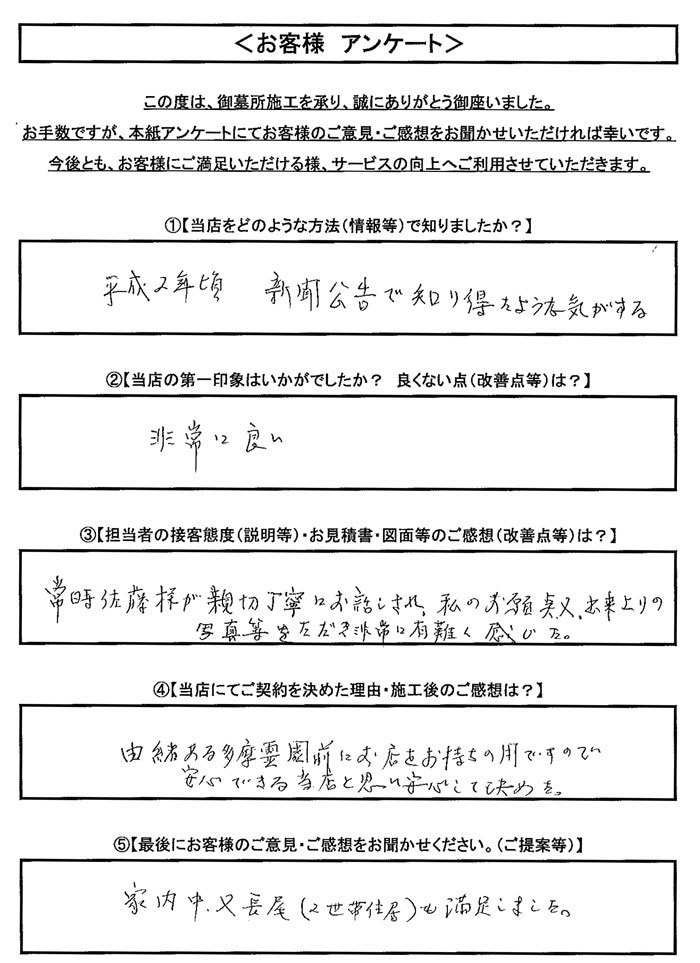 ＜お客様 アンケート＞
この度は、御墓所施工を承り、誠にありがとう御座いました。
お手数ですが、本紙アンケートにてお客様のご意見・ご感想をお聞かせいただければ幸いです。
今後とも、お客様にご満足いただける様、サービスの向上へご利用させていただきます。
①【当店をどのような方法（情報等）で知りましたか？】
平成２年頃 新聞公告で知り得たような気がする
②【当店の第一印象はいかがでしたか？ 良くない点（改善点等）は？】
非常に良い
③【担当者の接客態度（説明等）・お見積書・図面等のご感想（改善点等）は？】
常時佐藤様が親切丁寧にお話しされ、私のお願点又、出来上りの
写真等をただき非常に有難く感じた。
④【当店にてご契約を決めた理由・施工後のご感想は？】
由緒ある多摩霊園前にお店をお持ちの用ですので
安心できる当店と思い安心して決めた。
⑤【最後にお客様のご意見・ご感想をお聞かせください。（ご提案等）】
家内中、又長尾（２世帯住居）も満足しました。